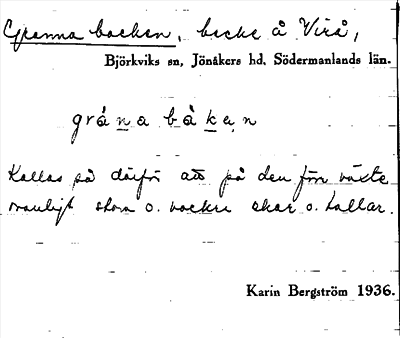 Granna backen, backe å Virå,
Björkviks sn, Jönåkers hd, Södermanlands län.
gràna bàkan
Kallas så därför att på den förr växte
ovanligt stora o. vackra ekar o. tallar.
Karin Bergström 1936.